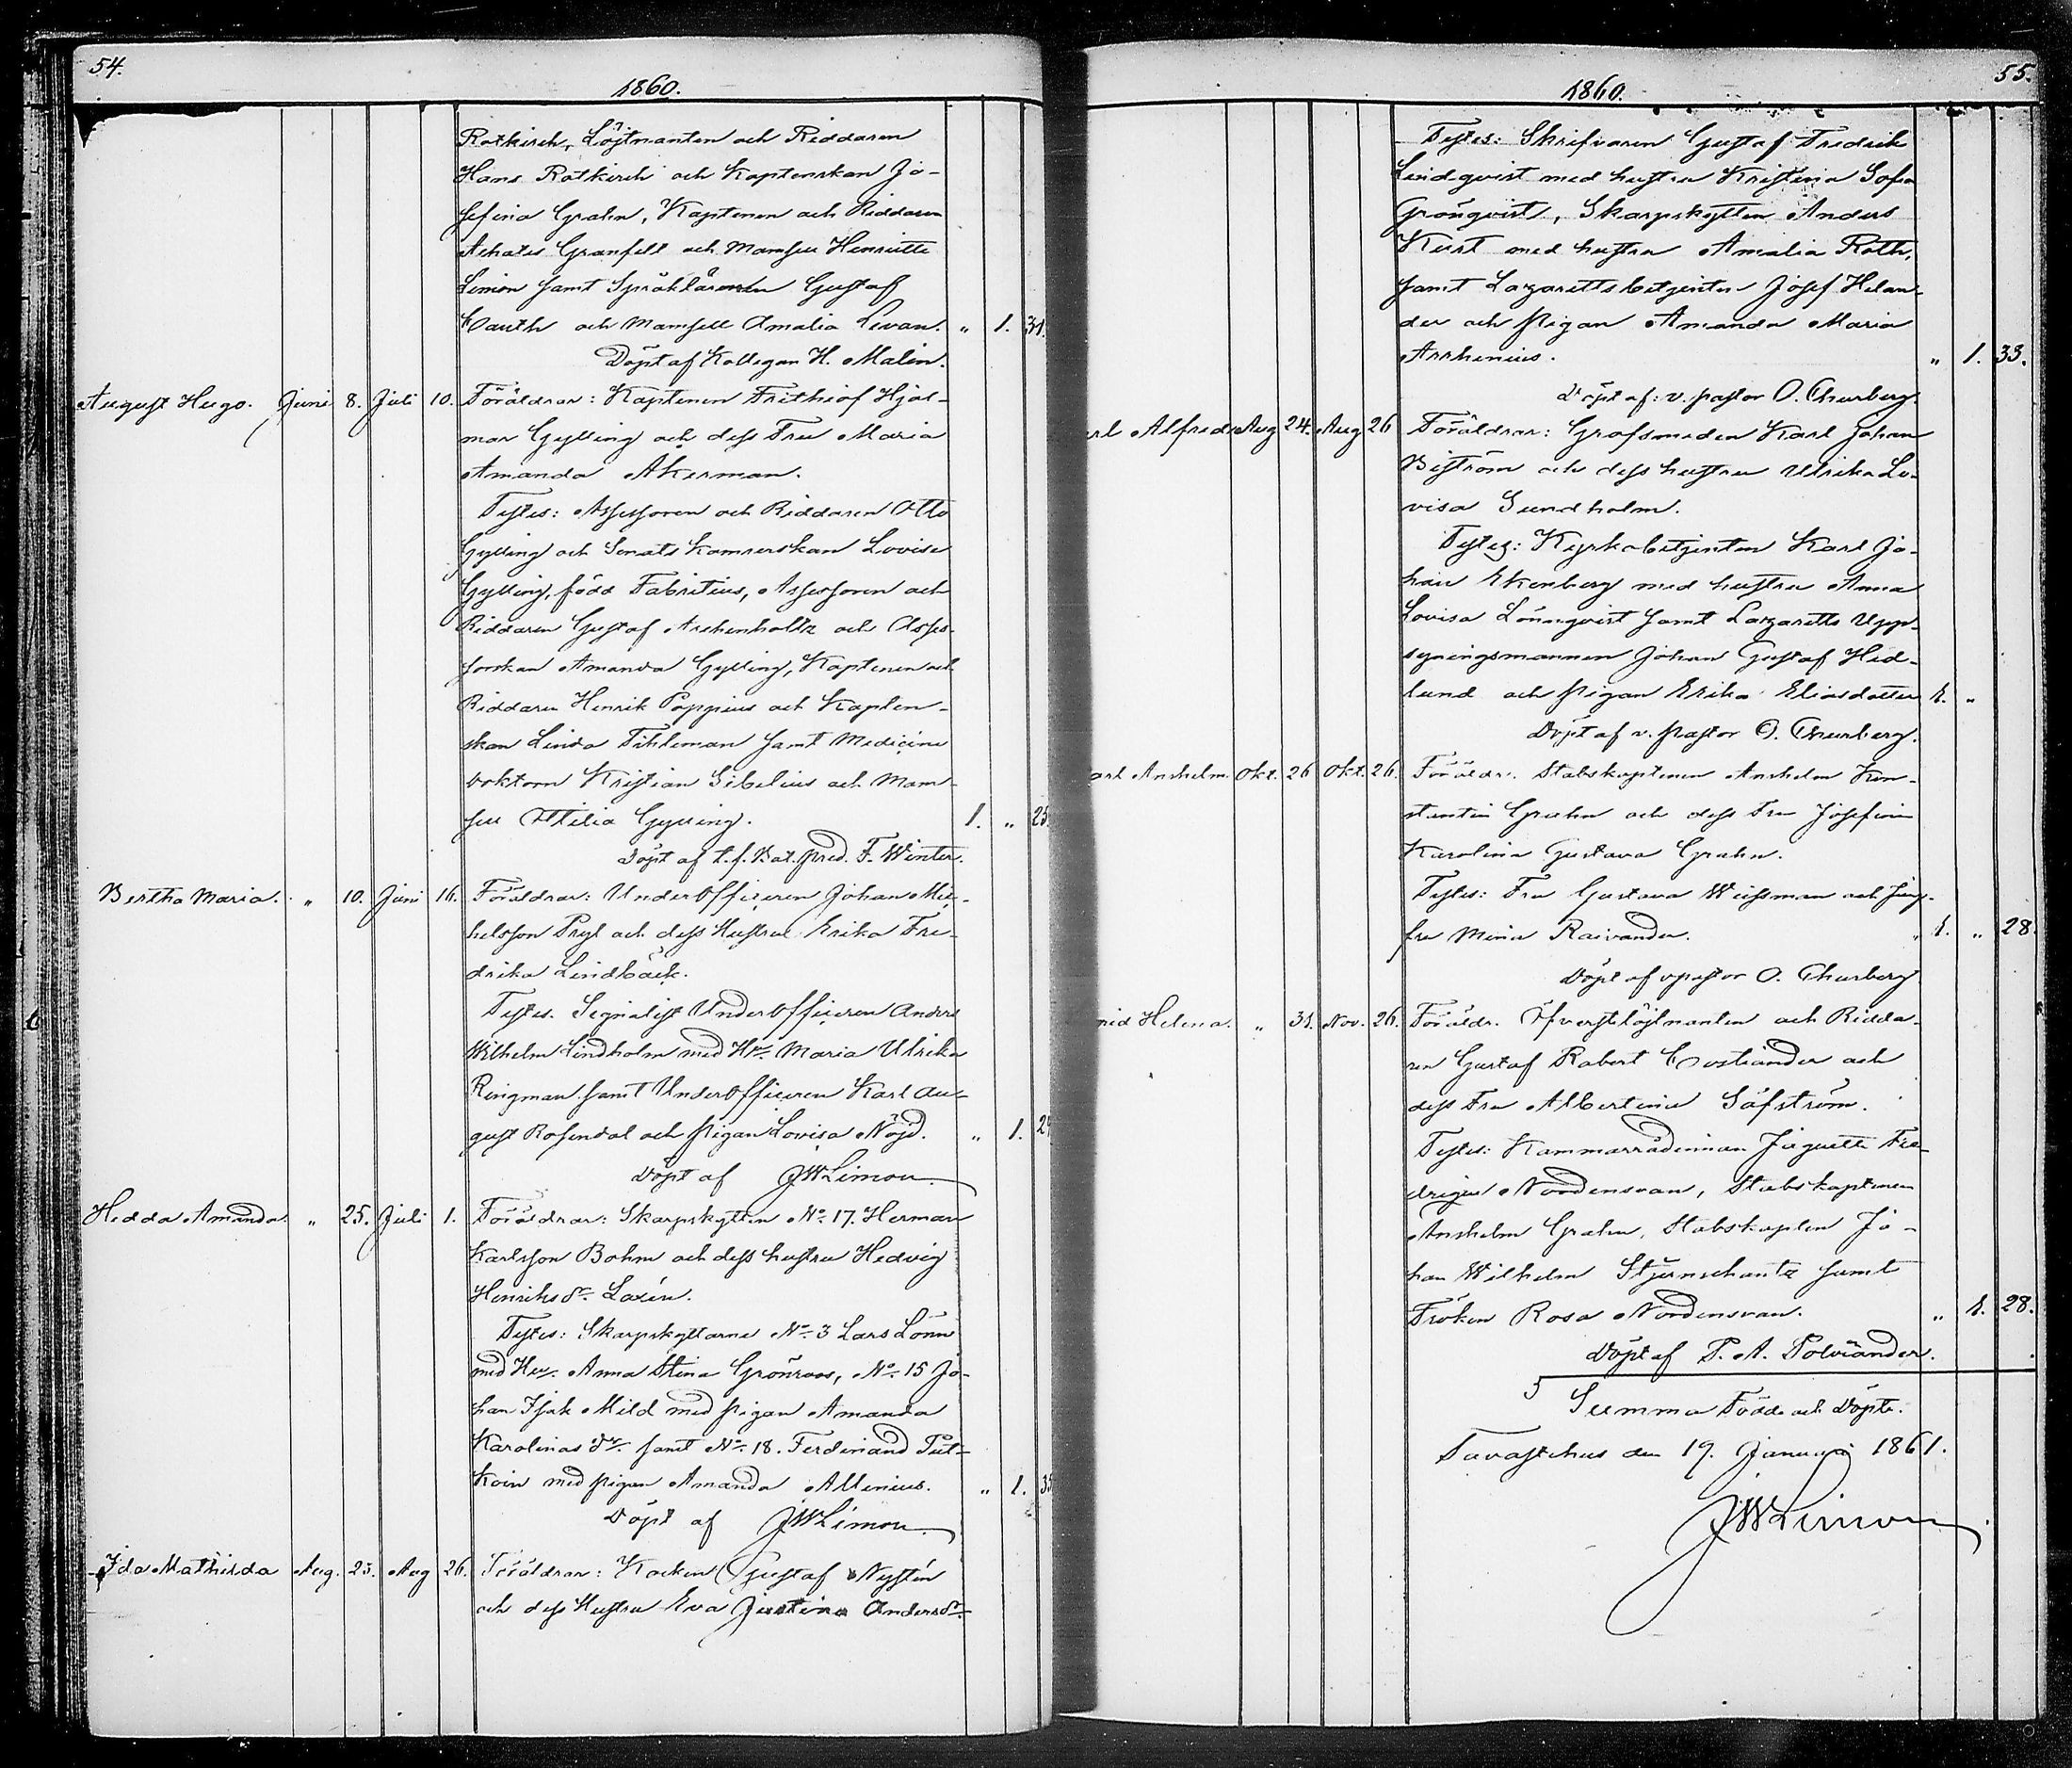 54.
1860.
Rotkirch, Löjtnanten och Riddaren
Hans Rotkirch och Kaptenskan Jo-
sefina Grahn, Kaptenen och Riddaren
Achates Granfelt och Mamsell Henriette
Limon samt Språkläraren Gustaf
Cauth och Mamsell Amalia Levan. " 1. 31.
Döpt af Kollegan H. Malin.
August Hugo. Juni 8. Juli 10. Föräldrar: Kaptenen Frithiof Hjal-
mar Gylling och dess Fru Maria
Amanda Åkerman.
Testes: Assessoren och Riddaren Otto
Gylling och Senats Kamrerskan Lovisa
Gylling, född Fabritius, Assessoren och
Riddaren Gustaf Archenholtz och Asses-
sorskan Amanda Gylling, Kaptenen och
Riddaren Henrik Poppius och Kapten-
skan Linda Tihleman samt Medicine
doktorn Kristian Sibelius och Mam-
sell Ottilia Gylling. 1. " 25
Döpt af t. f. Bat. pred. F. Winter.
Bertha Maria. " 10. Juni 16. Föräldrar: Underofficeren Johan Mic-
helsson Pryl och dess Hustru Erika Fre-
drika Lindbäck.
Testes. Signalist Underofficeren Anders
Wilhelm Lindholm med Hu. Maria Ulrika
Ringman samt Underofficeren Karl Au-
gust Rosendal och pigan Lovisa Nöjd. " 1. 29
Döpt af JWLimon
Hedda Amanda. " 25. Juli 1. Föräldrar: Skarpskytten No. 17. Herman
Karlsson Bohm och dess hustru Hedvig
Henriksdr. Laxén.
Testes: Skarpskyttarne No. 3 Lars Lönn
med Hu. Anna Stina Grönroos, No. 15 Jo-
han Isak Mild med pigan Amanda
Karolinas dr. samt No. 18. Ferdinand Put-
koin med pigan Amanda Allenius. " 1. 35
Döpt af JWLimon
Ida Mathilda Aug. 23. Aug 26. Föräldrar: Kocken Gustaf Nystén
och dess Hustru Eva Justina Andersdr.
55.
1860.
Testes: Skrifvaren Gustaf Fredrik
Lindqvist med hustru Kristina Sofia
Grönqvist, Skarpskytten Anders
Kust med hustru Amalia Roth,
samt Lazarettsbetjenten Josef Helan-
der och pigan Amanda Maria
Arrhenius. " 1. 33.
Döpt af: v. pastor O. Thurberg.
rl Alfred Aug 24. Aug 26 Föräldrar: Grofsmeden Karl Johan
Biström och dess hustru Ulrika Lo-
visa Sundholm.
Testes: Kyrkobetjenten Karl Jo-
han Ekenberg med hustru Anna
Lovisa Lönnqvist samt Lazaretts Upp-
syningsmannen Johan Gustaf Hed-
lund och pigan Erika Eliasdotter 1. "
Döpt af v. pastor O. Thurberg.
arl Anshelm. Okt. 26 Okt. 26. Föräldr. Stabskaptenen Anshelm Kon-
stantin Grahn och dess Fru Josefina
Karolina Gustava Grahn.
Testes: Fru Gustava Weissman och Jung-
fru Mina Raivander. 1. " 28.
Döpt af v pastor O. Thurberg
rid Helena. " 31. Nov. 26. Föräldr. Öfverstlöjtnanten och Ridda-
ren Gustaf Robert Costiander och
dess Fru Albertina Säfström.
Testes: Kammarrådinnan Jaquette Fre-
drique Nordensvan, Stabskaptenen
Anshelm Grahn, Stabskapten Jo-
han Wilhelm Stjernschantz samt
Fröken Rosa Nordensvan. " 1. 28.
Döpt af P. A. Polviander.
Summa Födde och Döpte.
Tavastehus den 19. Januari 1861.
JWLimon